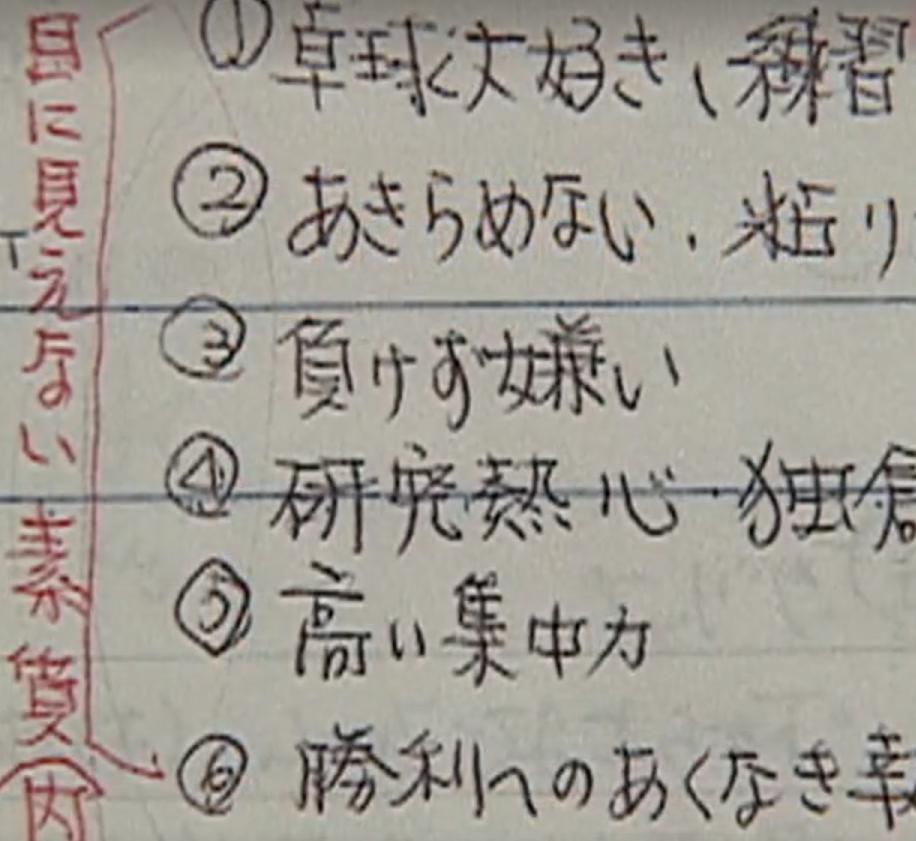 目に見えない素質(内
① 卓球大好き、練習
② あきらめない．粘り
③ 負けず嫌い
④ 研究熱心・独創
⑤ 高い集中力
⑥ 勝利へのあくなき執